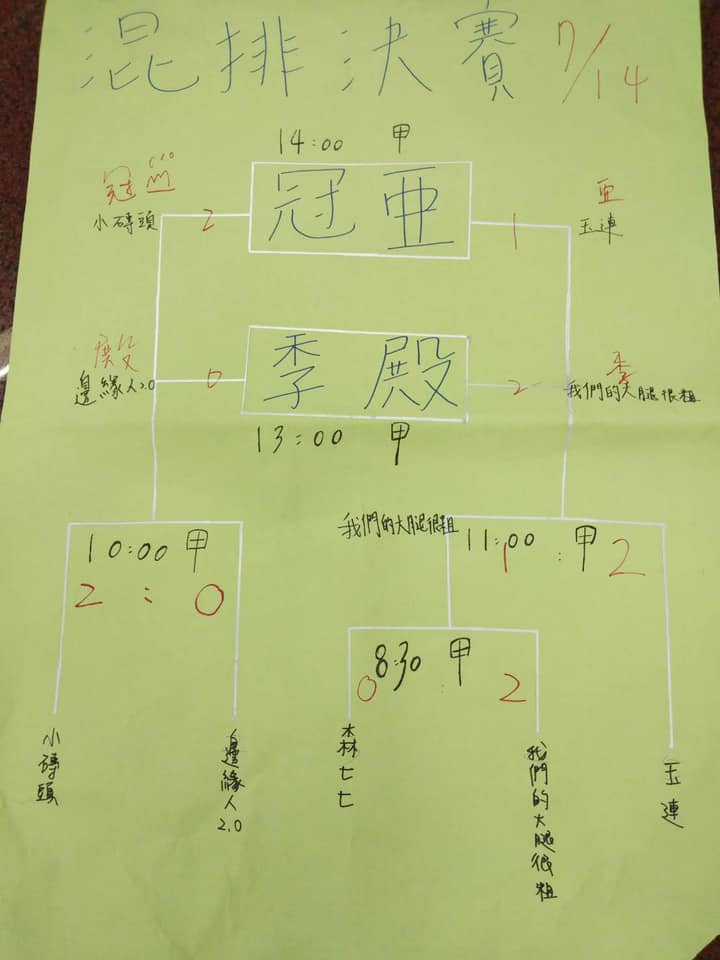 混排決賽 7/14
14:00 甲
冠
小磚頭
2
冠亜
1
亜
玉連
殿
邊緣人2.0
0
季殿
2
季
我們的大腿很粗
13:00 甲
10:00 甲
2 : 0
我們的大腿很粗
11:00 甲
1 : 2
8:30 甲
0 : 2
小磚頭
邊緣人2.0
森七七
我們的大腿很粗
玉連